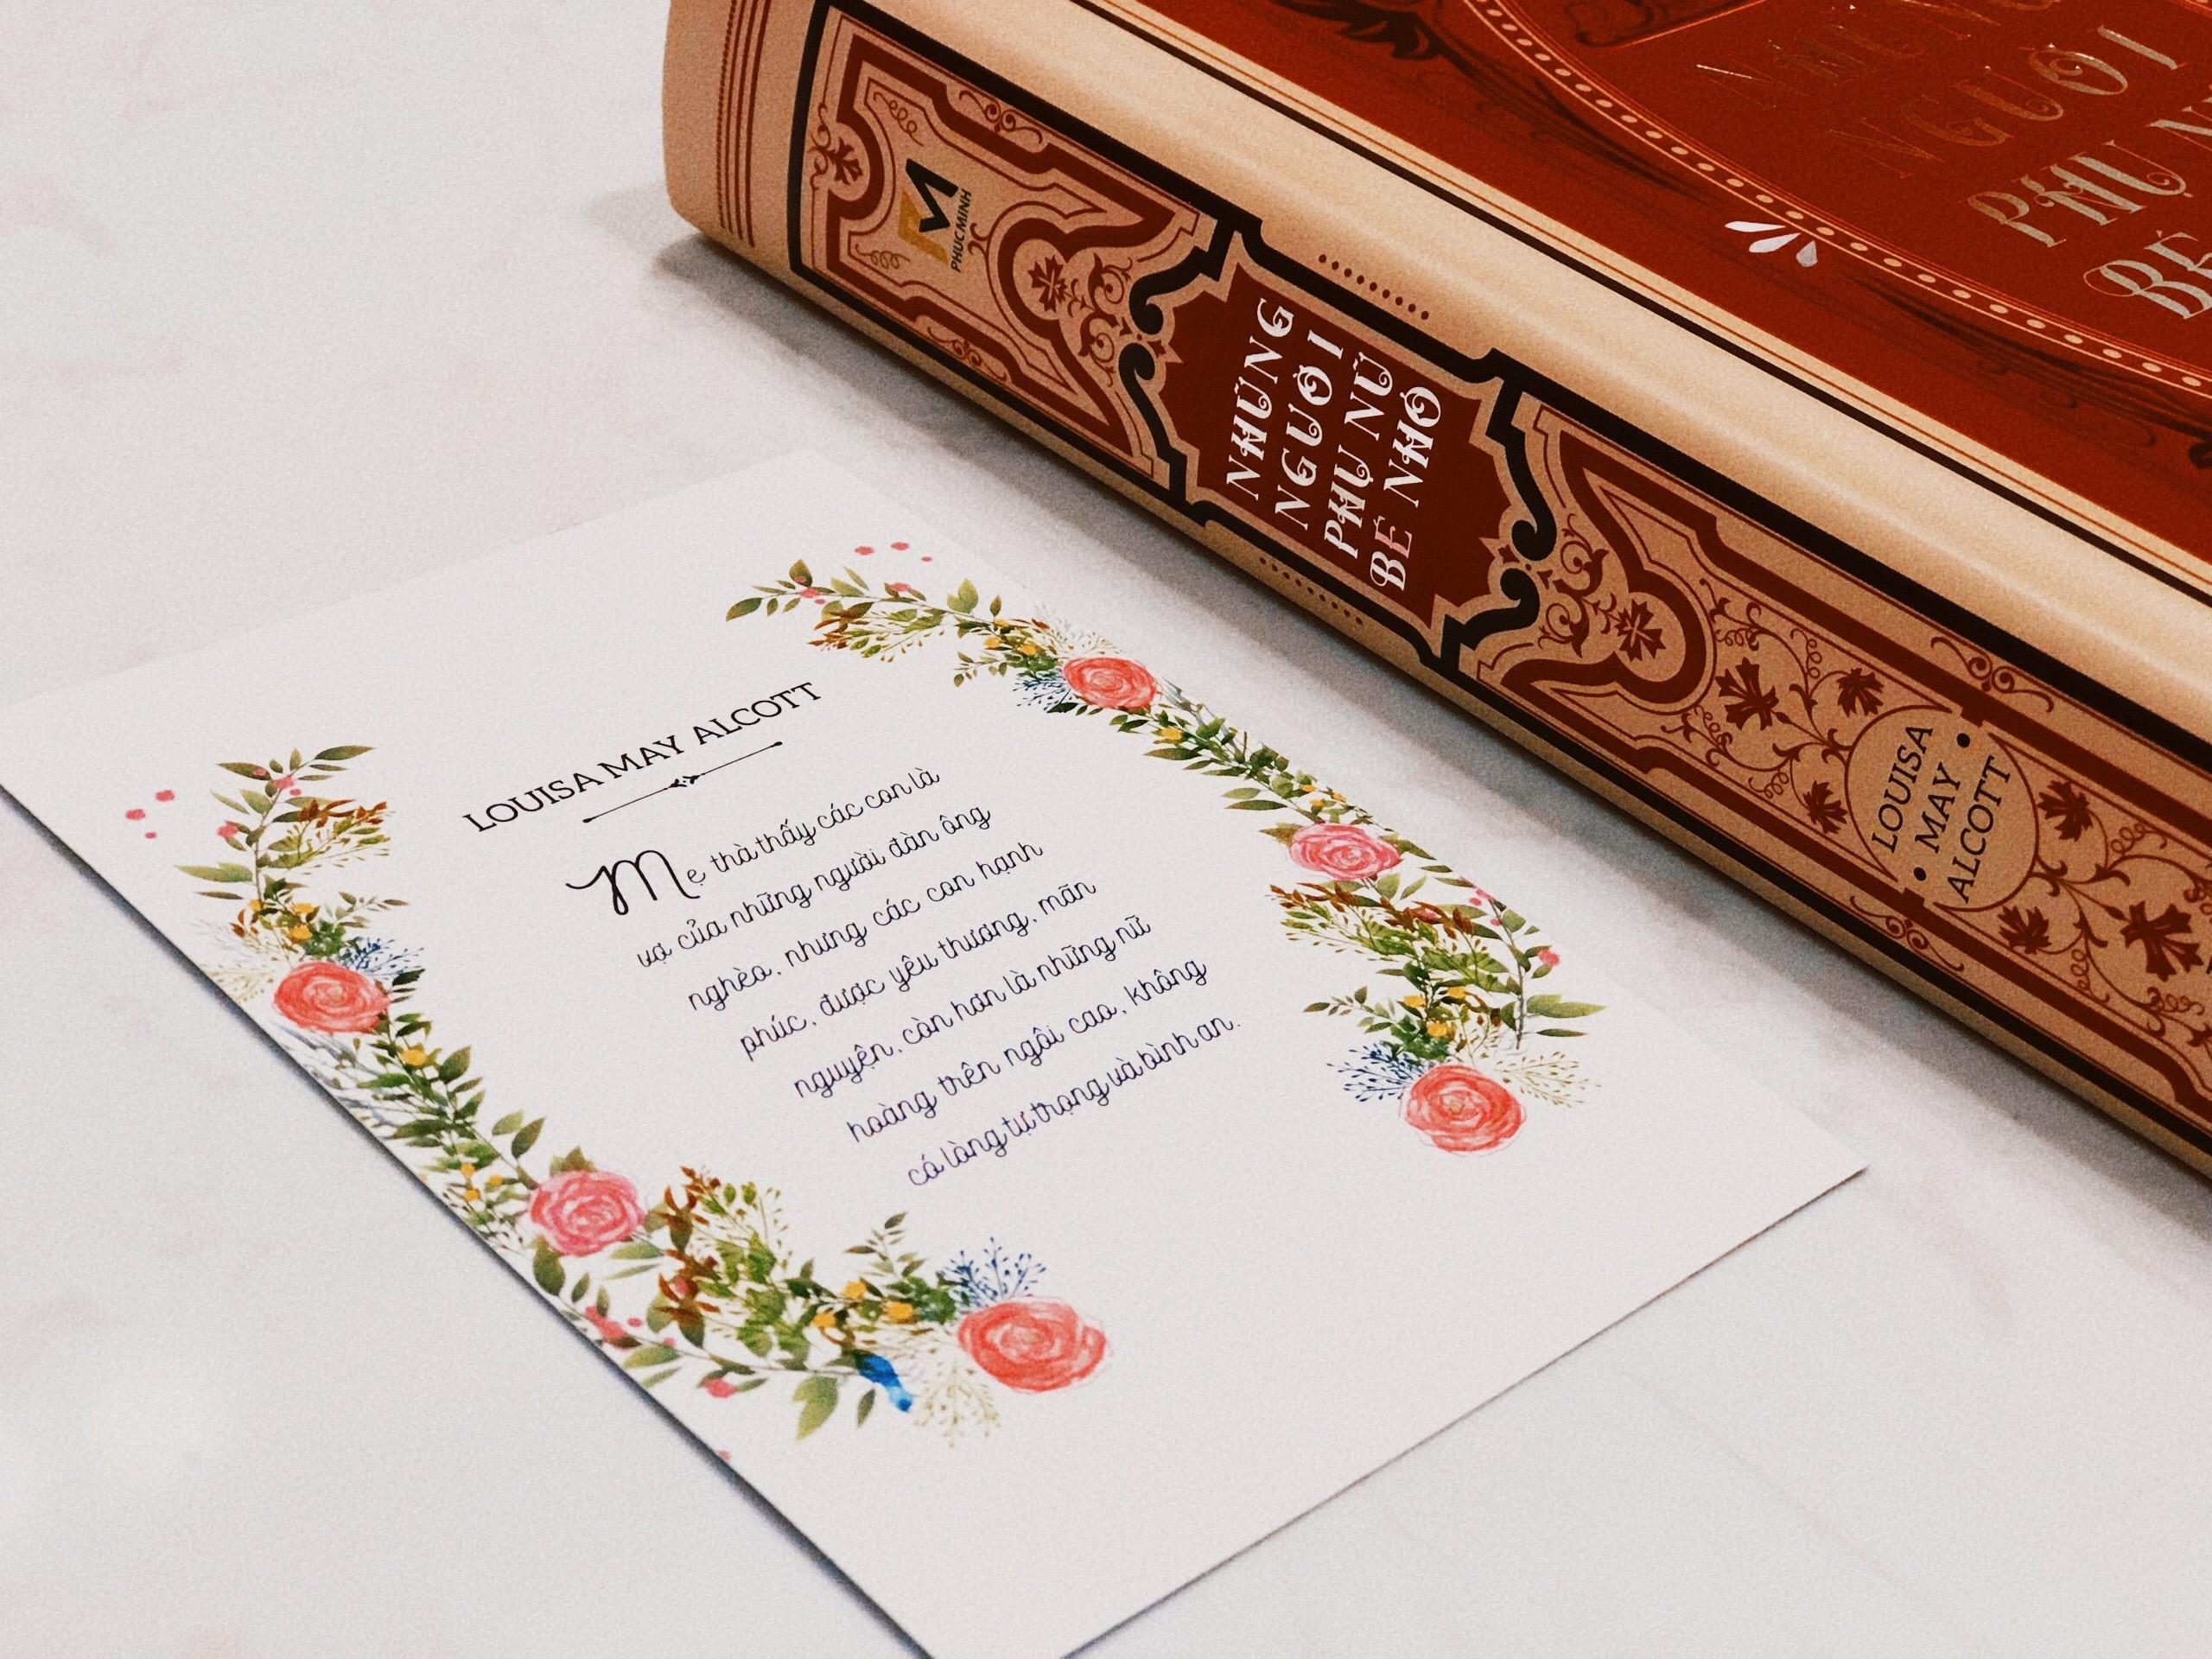 LOUISA MAY ALCOTT
Mẹ thà thấy các con là
vợ của những người đàn ông
nghèo, nhưng các con hạnh
phúc, được yêu thương, mãn
nguyện, còn hơn là những nữ
hoàng trên ngôi cao, không
có lòng tự trọng và bình an.
PHUCMINH
NHỮNG
NGƯỜI
PHỤ NỮ
BÉ NHỎ
LOUISA
MAY
ALCOTT
NGƯỜI
PHỤ
BÉ